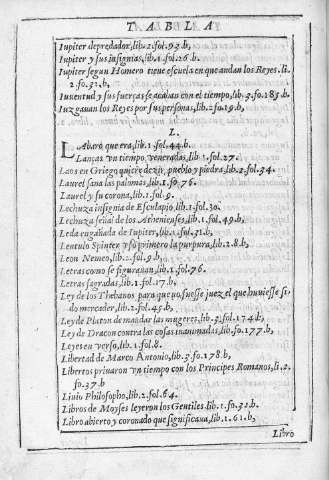 TABLA
Iupiter depredador, lib. 2. fol. 93. b,
Iupiter y sus insignias, lib. 1. fol. 26. b.
Iupiter segun Homero tiene escuela en que andan los Reyes. li.
2. fo. 31. b,
Iuuentud y sus fuerças se acaban con el tiempo, lib. 3. fo. 183. b.
Iuzgauan los Reyes por sus personas, lib. 2. fo. 19. b,
L.
Labaro que era, lib. 1. fol. 44. b.
Lanças vn tiempo veneradas, lib. 1. fol. 27.
Laos en Griego quiere dezir, pueblo y piedra, lib. 2. fol. 34.
Laurel sana las palomas, lib. 1. fo. 76.
Laurel y su corona, lib. 1. fol. 9.
Lechuza insignia de Esculapio, lib. 1. fol. 30.
Lechuza señal de los Athenienses, lib. 1. fol. 49. b,
Leda engañada de Iupiter, lib. 1. fol. 31. b,
Lentulo Spinter vsò primero la purpura, lib. 1. 8. b,
Leon Nemeo, lib. 2. fol. 9. b,
Letras como se figurauan, lib. 1. fol. 76.
Letras sagradas, lib. 1. fol. 17. b,
Ley de los Thebanos para que no fuesse juez el que huuiesse si-
do mercader, lib. 2. fol. 45. b,
Ley de Platon de mandar las mugeres, lib. 3. fol. 174. b,
Ley de Dracon contra las cosas inanimadas, lib. fo. 177. b,
Leyes en verso, lib. 1. fol. 8.
Libertad de Marco Antonio, lib. 3. fo. 178. b,
Libertos priuaron vn tiempo con los Principes Romanos, li. 2.
fo. 37. b
Liuio Philosopho, lib. 2. fol. 64.
Libros de Moyses leyeron los Gentiles, lib. 1. fo. 32. b.
Libro abierto y coronado que significaua, lib. 1. 61. b,
Libro